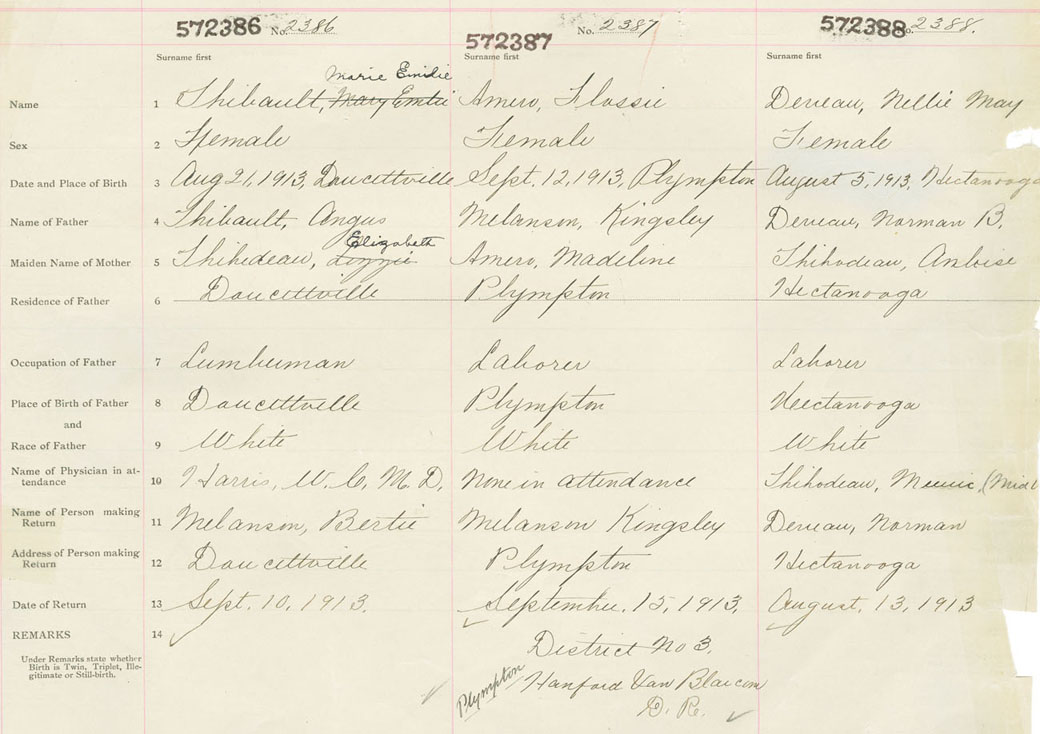 572386 No. 2386 572387 No. 2387 572388 No. 2388.
Surname first Surname first Surname first
Marie Emilie
Name 1 Thibault, Mary Emilie Amero, Flossie Deveau, Nellie May
Sex 2 Female Female Female
Date and Place of Birth 3 Aug 21, 1913, Doucettville Sept. 12, 1913, Plympton August 5, 1913, Hectanooga
Name of Father 4 Thibault, Angus Melanson, Kingsley Deveau, Norman B.
Elizabeth
Maiden Name of Mother 5 Thibedeau, Lizzie Amero, Madeline Thibodeau,
Residence of Father 6 Doucettville Plympton Hectanooga
Occupation of Father 7 Lumberman Laborer Laborer
Place of Birth of Father 8 Doucettville Plympton Hectanooga
and
Race of Father 9 White White White
Name of Physician in at-
tendance 10 Harris, W. C, M. D. None in attendance Thibodeau,
Name of Person making
Return 11 Melanson, Bertie Melanson Kingsley Deveau, Norman
Address of Person making
Return 12 Doucettville Plympton Hectanooga
Date of Return 13 Sept. 10, 1913. September. 15, 1913. August. 13, 1913
REMARKS 14
Under Remarks state whether
Birth is Twin, Triplet, Ille-
gitimate or Still-birth.
District No 3.
Plympton Hanford Van Blarcom
D. R.